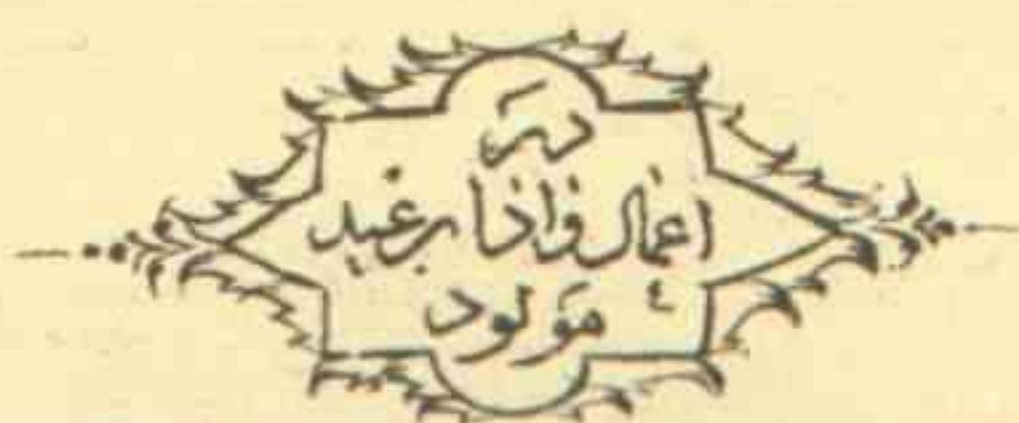 در
اعمال و اداب عید
مولود